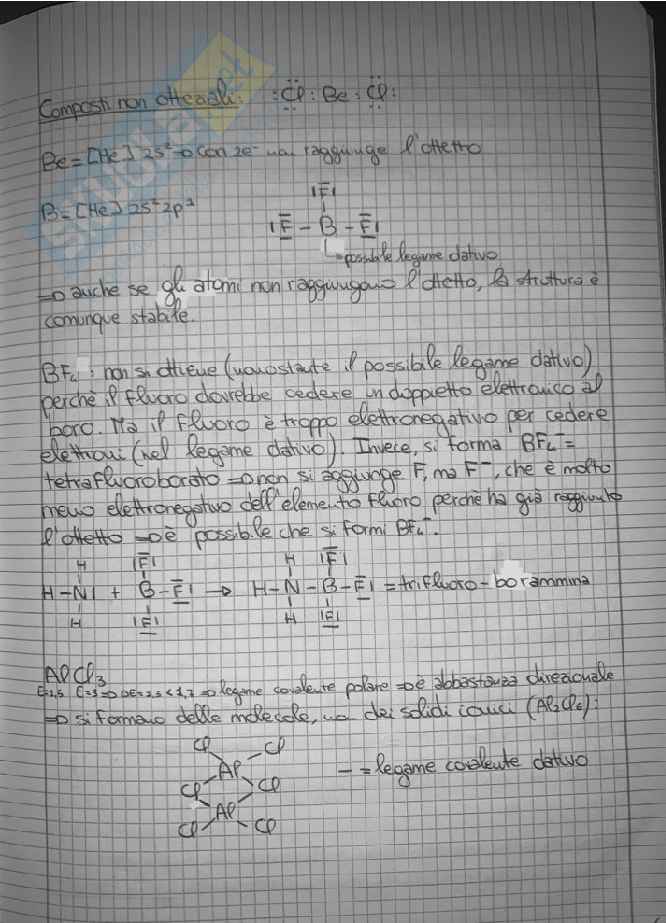 Composti non ottetali: :Cl : Be : Cl:
Be = [He] 2s² → con 2e⁻ non raggiunge l'ottetto
|F|
B = [He] 2s² 2p¹
|F – B – F|
possibile legame dativo
→ anche se gli atomi non raggiungono l'ottetto, la struttura è
comunque stabile.
BF₄ : non si ottiene (nonostante il possibile legame dativo)
perchè il fluoro dovrebbe cedere un doppietto elettronico al
boro. Ma il fluoro è troppo elettronegativo per cedere
elettroni (nel legame dativo). Invece, si forma BF₄⁻ =
tetrafluoroborato → non si aggiunge F, ma F⁻, che è molto
meno elettronegativo dell'elemento fluoro perchè ha già raggiunto
l'ottetto → è possibile che si formi BF₄⁻.
H |F| H |F|
H – N| + B – F| → H – N – B – F| = trifluoro-borammina
H |F| H |F|
AlCl₃
→ legame covalente polare → è abbastanza direzionale
→ si formano delle molecole, non dei solidi ionici (Al₂Cl₆):
Cl Cl
Al – = legame covalente dativo
Cl Cl
Al
Cl Cl